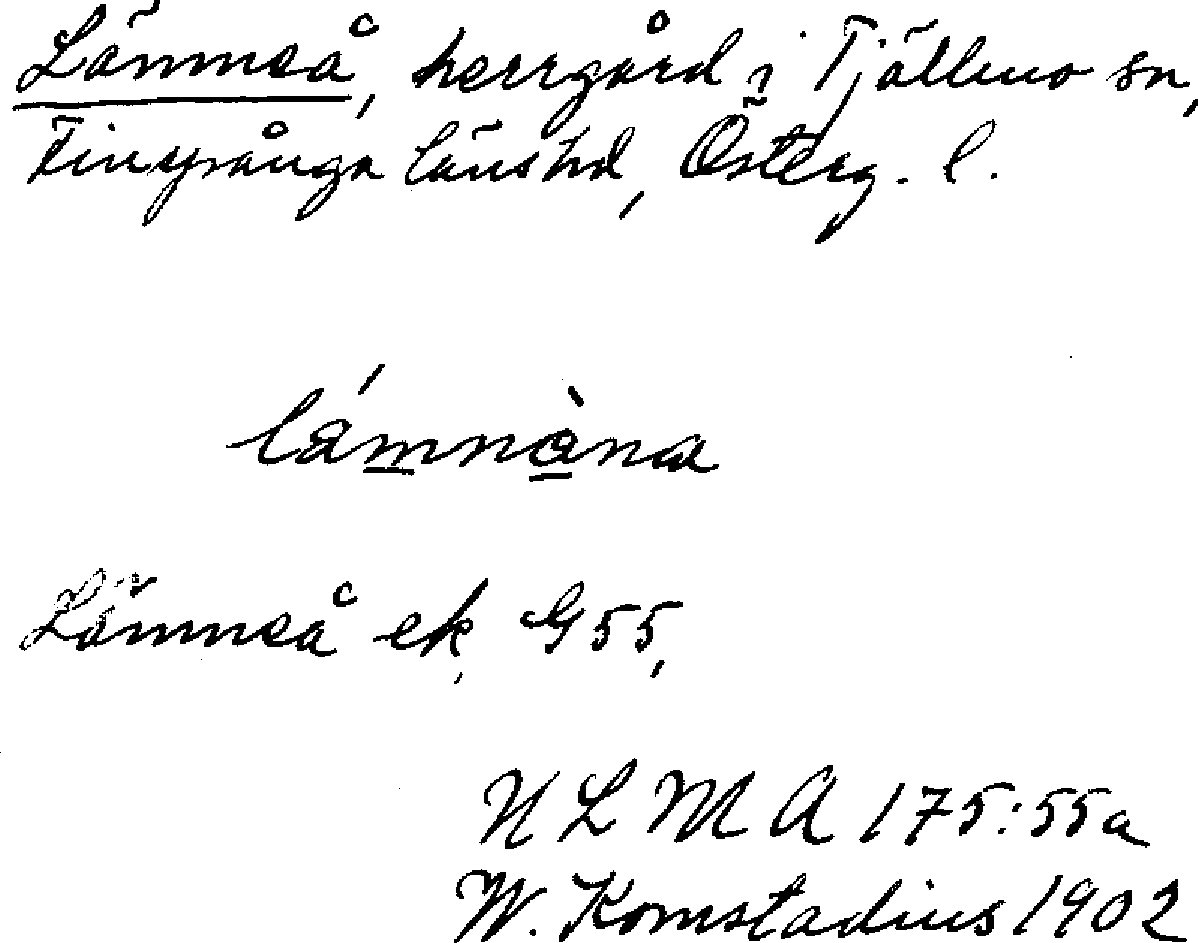 Lämneå, herrgård i Tjällmo sn,
Finspånga länshd, Österg. l.
lámnàna
Lämneå ek, G55,
ULMA 175:55a
W. Komstadius 1902